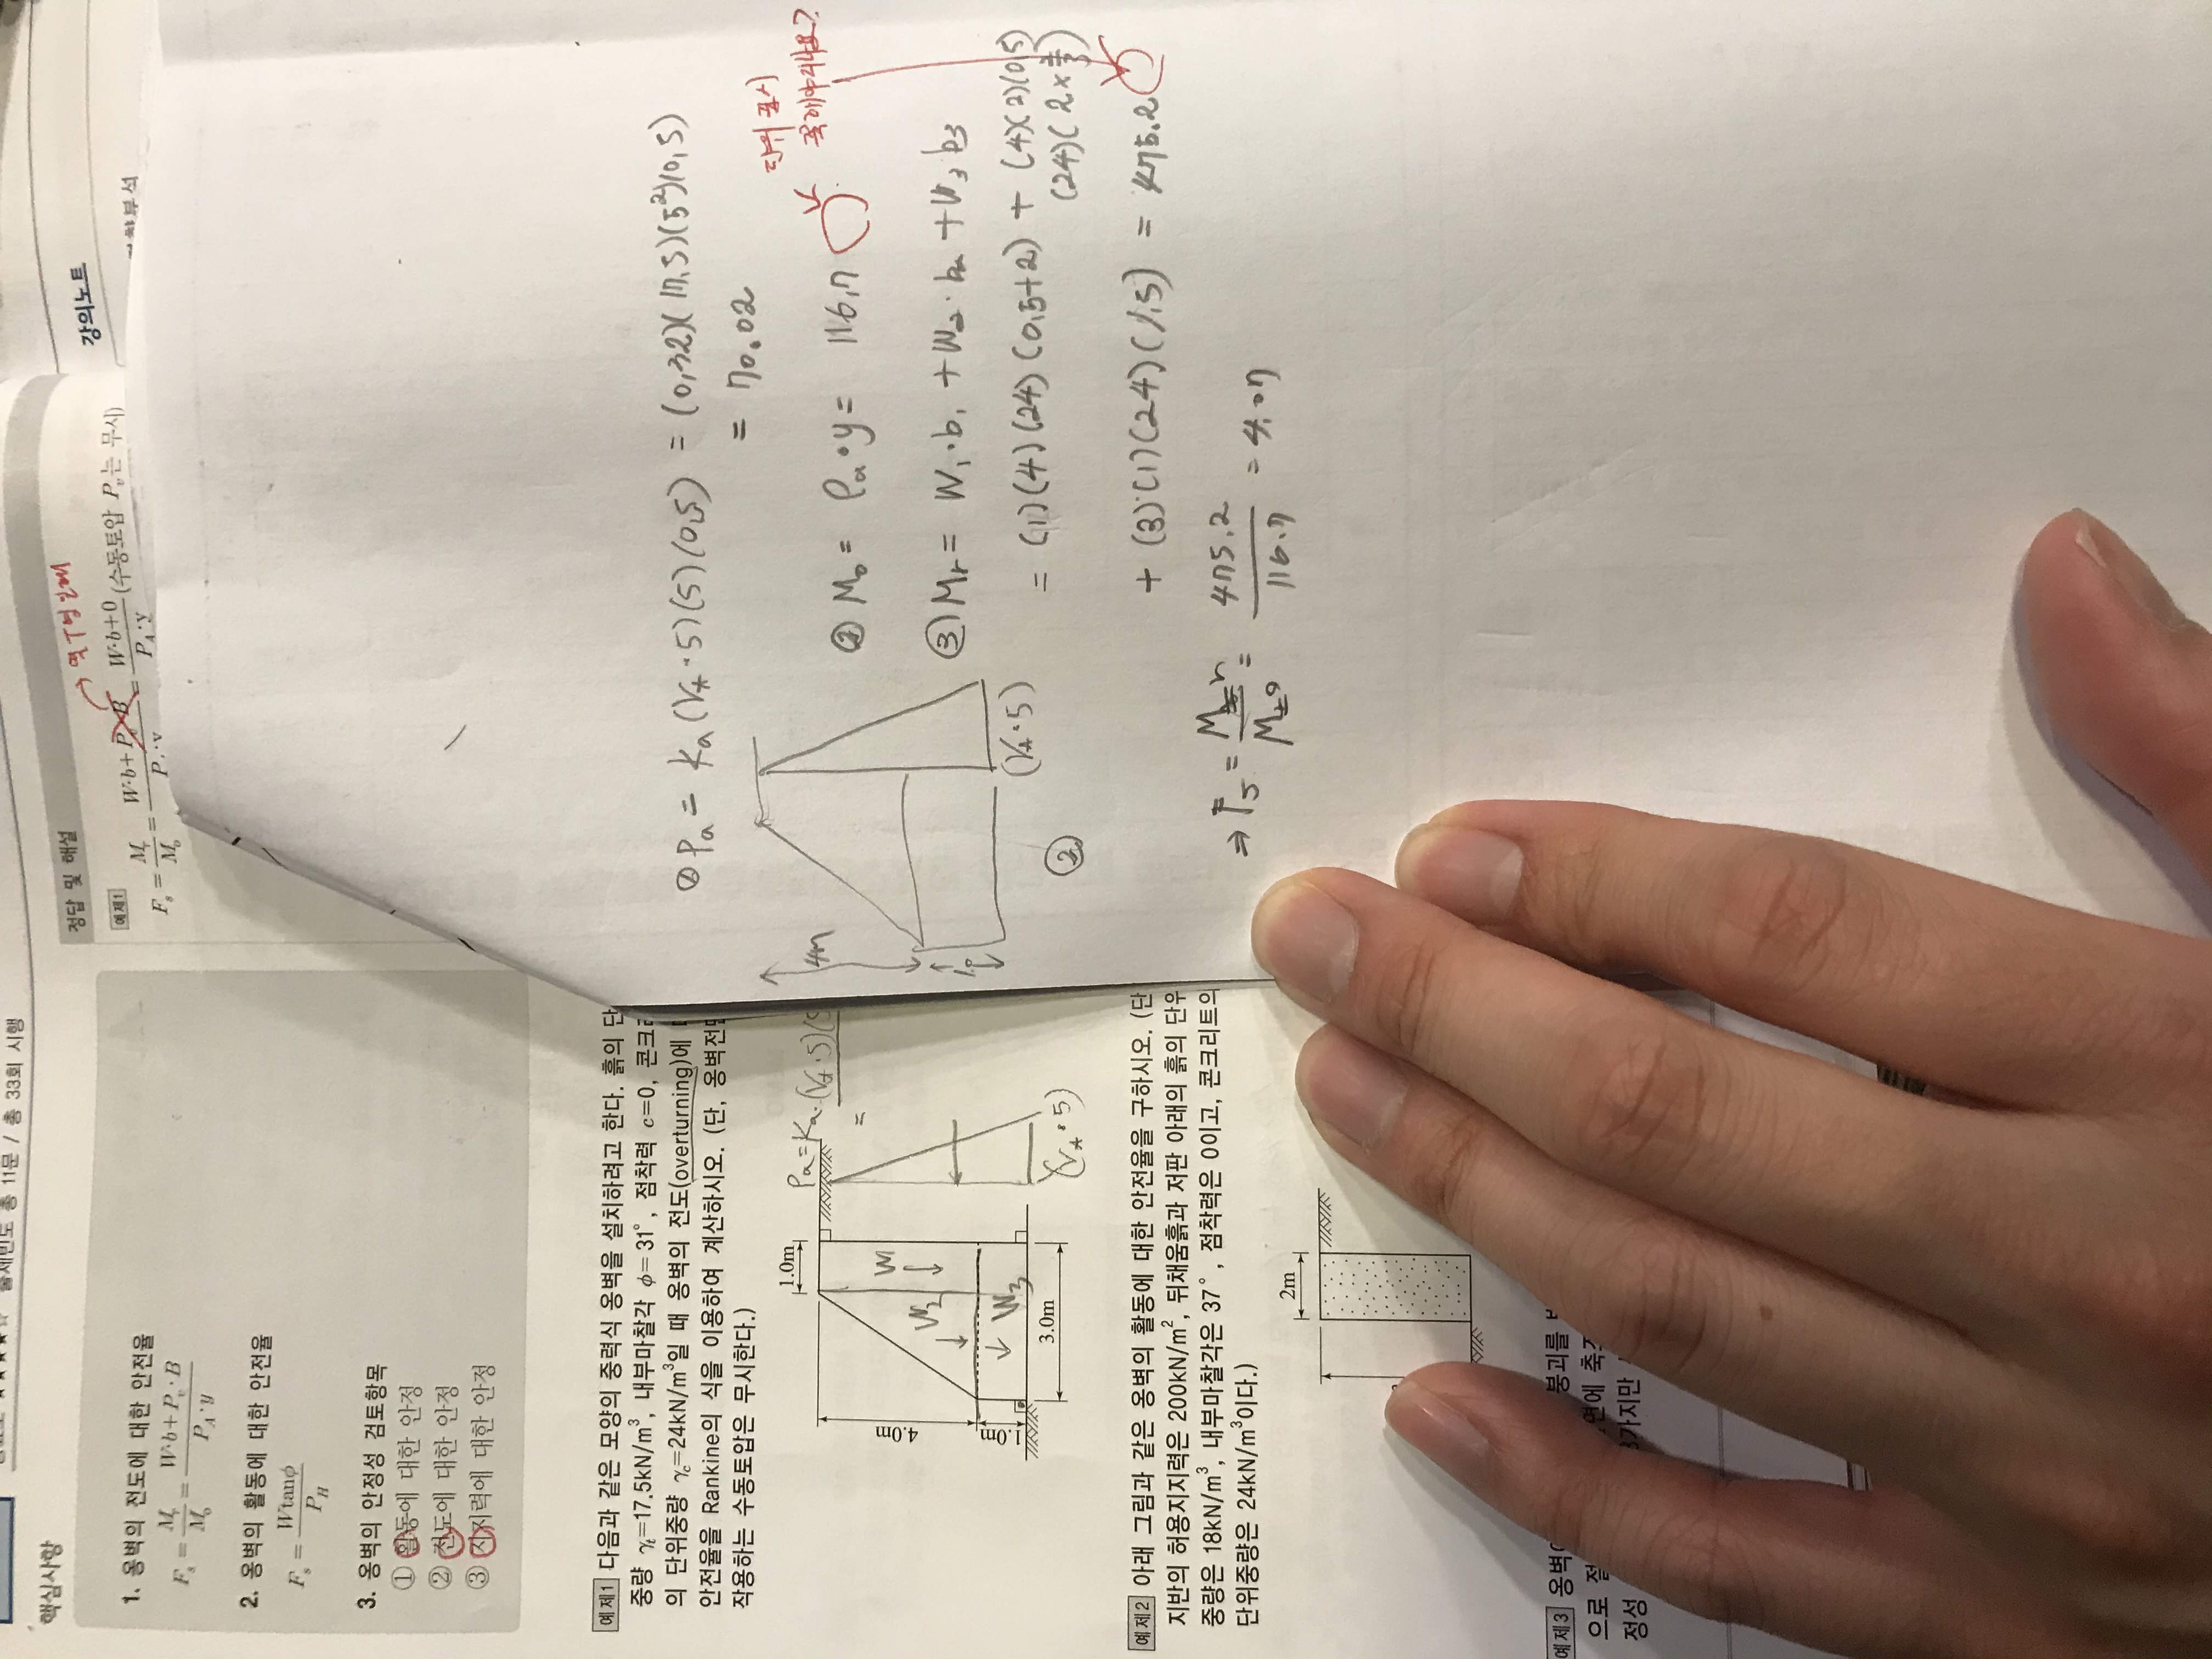 총 11문 / 총 33회 시행
핵심사항
1. 옹벽의 전도에 대한 안전율
F_s = M_r / M_o = (W·b+P_v·B) / (P_A·y)
2. 옹벽의 활동에 대한 안전율
F_s = Wtanφ / P_H
3. 옹벽의 안정성 검토항목
① 활동에 대한 안정
② 전도에 대한 안정
③ 지지력에 대한 안정
강의노트
정답 및 해설
예제1
역 T형일때
F_s = M_r / M_o = (W·b+P_v·B) / (P_A·y) = (W·b+0) / (P_A·y) (수동토압 P_p는 무시)
예제1 다음과 같은 모양의 중력식 옹벽을 설치하려고 한다. 흙의 단
중량 γ_t=17.5kN/m³, 내부마찰각 φ=31°, 점착력 c=0, 콘크리
의 단위중량 γ_c=24kN/m³일 때 옹벽의 전도(overturning)에
안전율을 Rankine의 식을 이용하여 계산하시오. (단, 옹벽전면
작용하는 수동토압은 무시한다.)
1.0m
4.0m
1.0m
3.0m
W1
W2
W3
Pa=Ka·(γt·5)
=
(γt·5)
예제2 아래 그림과 같은 옹벽의 활동에 대한 안전율을 구하시오. (단
지반의 허용지지력은 200kN/m², 뒤채움흙과 저판 아래의 흙의 단위
중량은 18kN/m³, 내부마찰각은 37°, 점착력은 0이고, 콘크리트의
단위중량은 24kN/m³이다.)
2m
예제3 옹벽이 붕괴를
으로
정성 3가지만
① Pa = Ka(γt·5)(5)(0.5) = (0.32)(17.5)(5²)(0.5)
= 70.02
4m
1.0
(γt·5)
②
② Mo = Pa·y = 116.7
단위 표시
꼭해야되나요?
③ Mr = W1·b1 + W2·b2 + W3b3
= (1)(4)(24)(0.5+2) + (4)(2)(0.5)
(24)(2×2/3)
+ (3)(1)(24)(1.5) = 475.2
⇒ Fs = Mr / Mo = 475.2 / 116.7 = 4.07